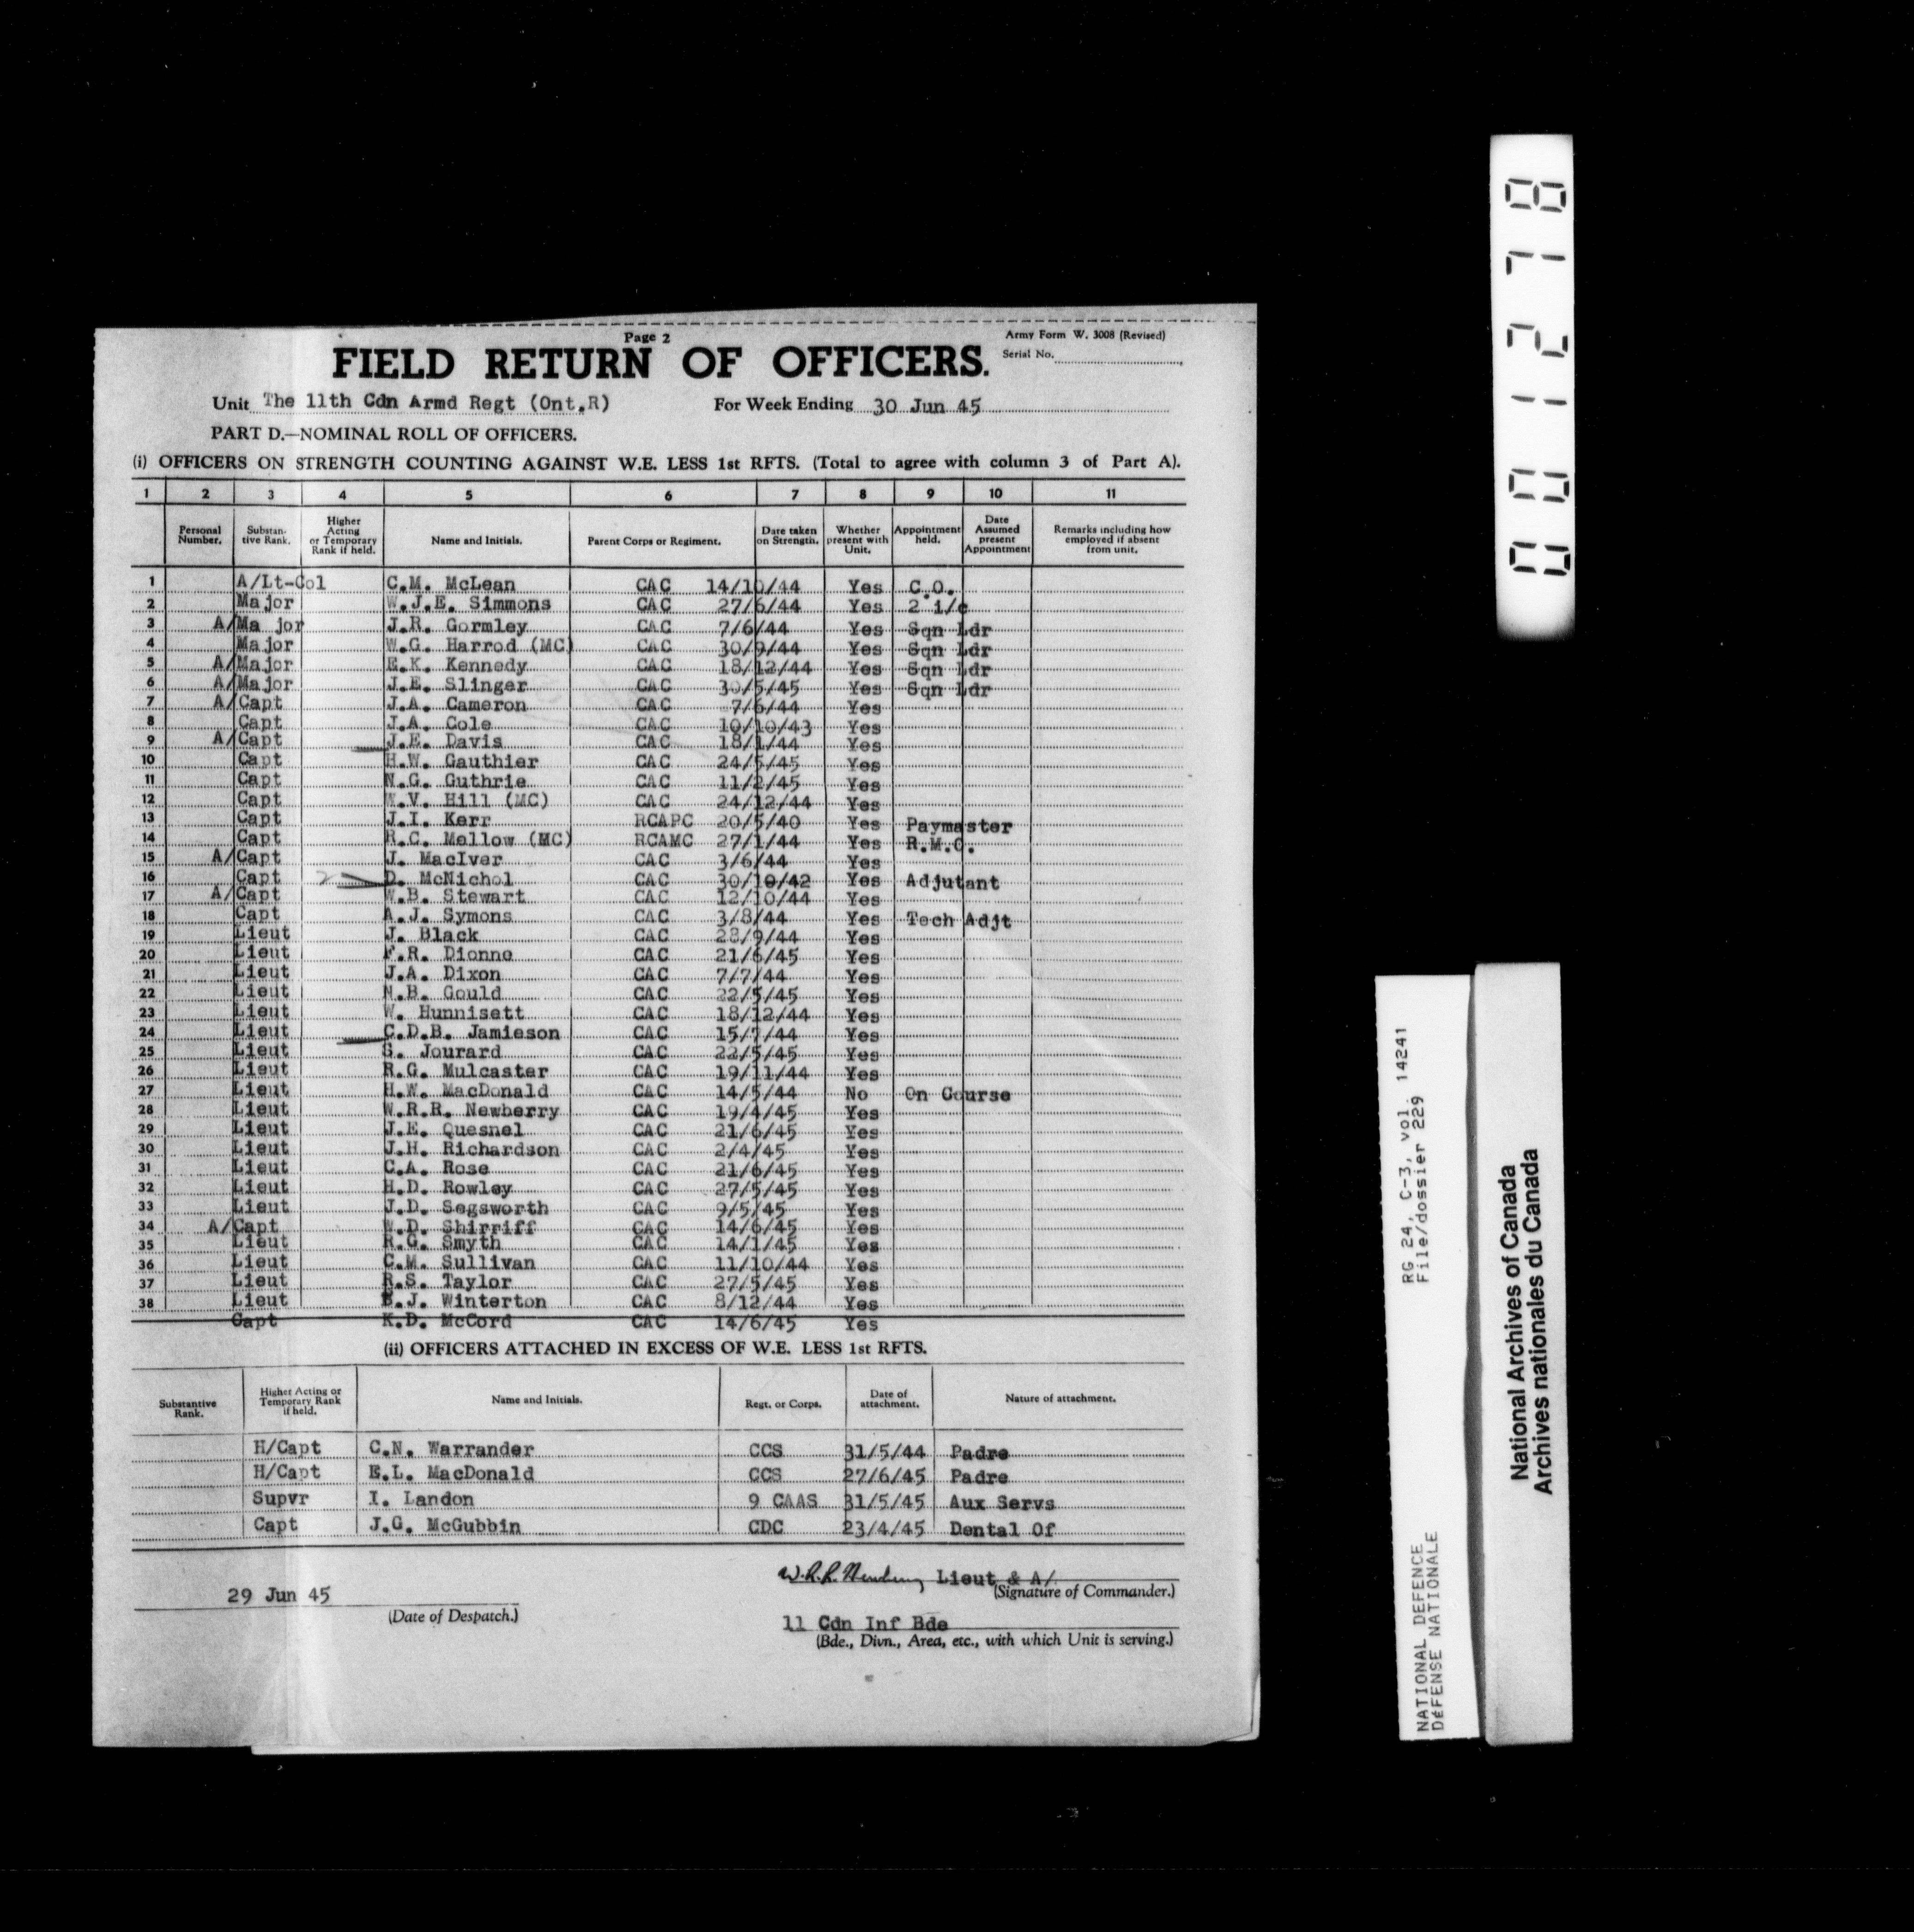 Page 2
Army Form W. 3008 (Revised)
FIELD RETURN OF OFFICERS.
Serial No.
Unit The 11th Cdn Armd Regt (Ont.R) For Week Ending 30 Jun 45
PART D.—NOMINAL ROLL OF OFFICERS.
(i) OFFICERS ON STRENGTH COUNTING AGAINST W.E. LESS 1st RFTS. (Total to agree with column 3 of Part A).
1 2 3 4 5 6 7 8 9 10 11
Personal Number. Substantive Rank. Higher Acting or Temporary Rank if held. Name and Initials. Parent Corps or Regiment. Date taken on Strength. Whether present with Unit. Appointment held. Date Assumed present Appointment Remarks including how employed if absent from unit.
1 A/Lt-Col C.M. McLean CAC 14/10/44 Yes C.O.
2 Major W.J.E. Simmons CAC 27/6/44 Yes 2 i/c
3 A/Major J.R. Gormley CAC 7/6/44 Yes Sqn Ldr
4 Major W.G. Harrod (MC) CAC 30/9/44 Yes Sqn Ldr
5 A/Major E.K. Kennedy CAC 18/12/44 Yes Sqn Ldr
6 A/Major J.E. Slinger CAC 30/5/45 Yes Sqn Ldr
7 A/Capt J.A. Cameron CAC 7/6/44 Yes
8 Capt J.A. Cole CAC 10/10/43 Yes
9 A/Capt J.E. Davis CAC 18/1/44 Yes
10 Capt H.W. Gauthier CAC 24/5/45 Yes
11 Capt N.G. Guthrie CAC 11/2/45 Yes
12 Capt W.V. Hill (MC) CAC 24/12/44 Yes
13 Capt J.I. Kerr RCAPC 20/5/40 Yes Paymaster
14 Capt R.C. Mellow (MC) RCAMC 27/1/44 Yes R.M.O.
15 A/Capt J. MacIver CAC 3/6/44 Yes
16 Capt D. McNichol CAC 30/10/42 Yes Adjutant
17 A/Capt W.B. Stewart CAC 12/10/44 Yes
18 Capt A.J. Symons CAC 3/8/44 Yes Tech Adjt
19 Lieut J. Black CAC 28/9/44 Yes
20 Lieut F.R. Dionne CAC 21/6/45 Yes
21 Lieut J.A. Dixon CAC 7/7/44 Yes
22 Lieut N.B. Gould CAC 22/5/45 Yes
23 Lieut W. Hunnisett CAC 18/12/44 Yes
24 Lieut C.D.B. Jamieson CAC 15/7/44 Yes
25 Lieut S. Jourard CAC 22/5/45 Yes
26 Lieut R.G. Mulcaster CAC 19/11/44 Yes
27 Lieut H.W. MacDonald CAC 14/5/44 No On Course
28 Lieut W.R.R. Newberry CAC 19/4/45 Yes
29 Lieut J.E. Quesnel CAC 21/6/45 Yes
30 Lieut J.H. Richardson CAC 2/4/45 Yes
31 Lieut C.A. Rose CAC 21/6/45 Yes
32 Lieut H.D. Rowley CAC 27/5/45 Yes
33 Lieut J.D. Segsworth CAC 9/5/45 Yes
34 A/Capt W.D. Shirriff CAC 14/6/45 Yes
35 Lieut R.G. Smyth CAC 14/1/45 Yes
36 Lieut C.M. Sullivan CAC 11/10/44 Yes
37 Lieut R.S. Taylor CAC 27/5/45 Yes
38 Lieut B.J. Winterton CAC 8/12/44 Yes
Capt K.D. McCord CAC 14/6/45 Yes
(ii) OFFICERS ATTACHED IN EXCESS OF W.E. LESS 1st RFTS.
Substantive Rank. Higher Acting or Temporary Rank if held. Name and Initials. Regt. or Corps. Date of attachment. Nature of attachment.
H/Capt C.N. Warrander CCS 31/5/44 Padre
H/Capt E.L. MacDonald CCS 27/6/45 Padre
Supvr I. Landon 9 CAAS 31/5/45 Aux Servs
Capt J.G. McGubbin CDC 23/4/45 Dental Of
W.R.R. Newberry Lieut & A/
(Signature of Commander.)
29 Jun 45
(Date of Despatch.)
11 Cdn Inf Bde
(Bde., Divn., Area, etc., with which Unit is serving.)
001278
RG 24, C-3, vol. 14241
File/dossier 229
NATIONAL DEFENCE
DÉFENSE NATIONALE
National Archives of Canada
Archives nationales du Canada